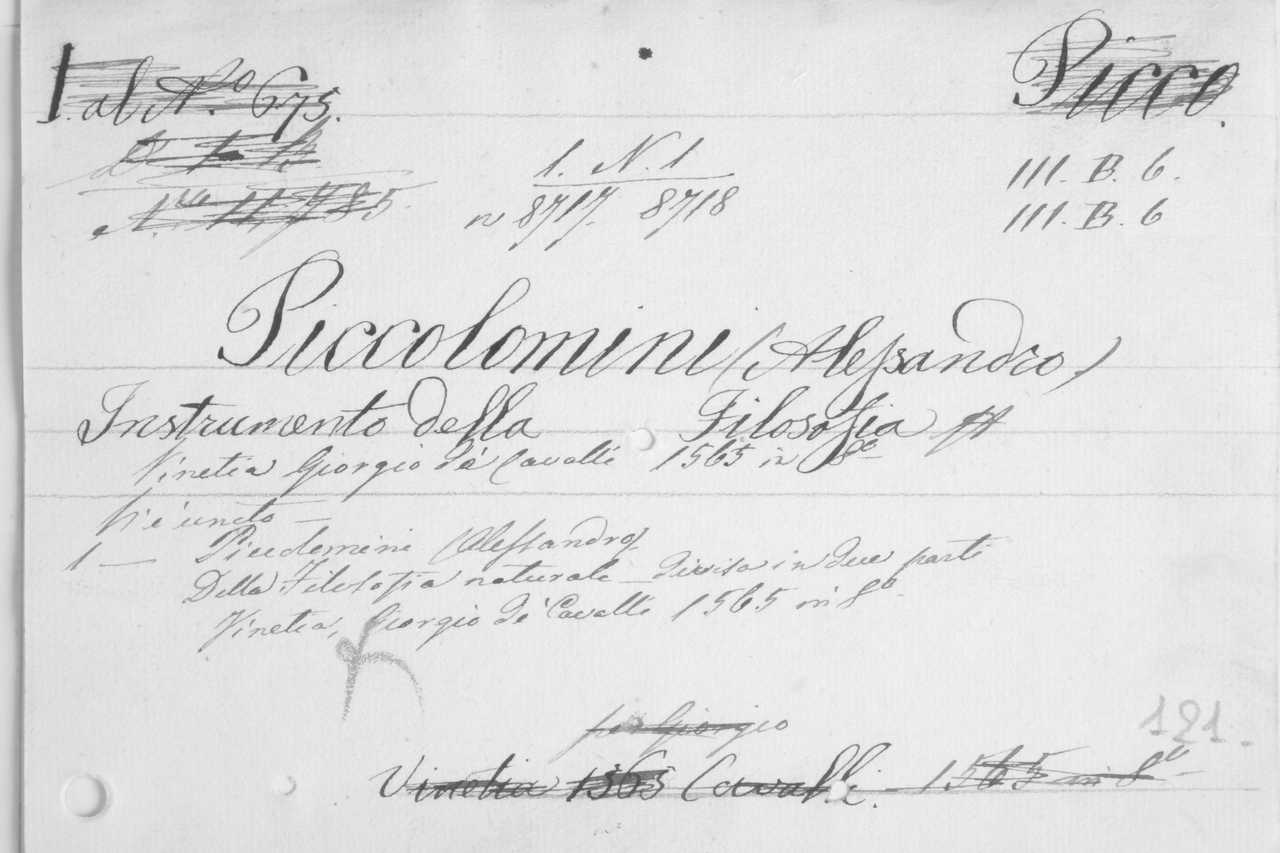 al N.º 675. Picco.
1. N. 1 III. B. 6.
Nro 11,785. n 8717. 8718 III. B. 6
Piccolomini (Alessandro)
Instrumento della Filosofia
Vinetia Giorgio de' Cavalli 1565 in 8º
Vi è unito —
1 — Piccolomini (Alessandro)
Della Filosofia naturale divisa in due parti
Vinetia, Giorgio de' Cavalli 1565 in 8º
per Giorgio
121.
Vinetia 1565 Cavalli. 1565 in 8º